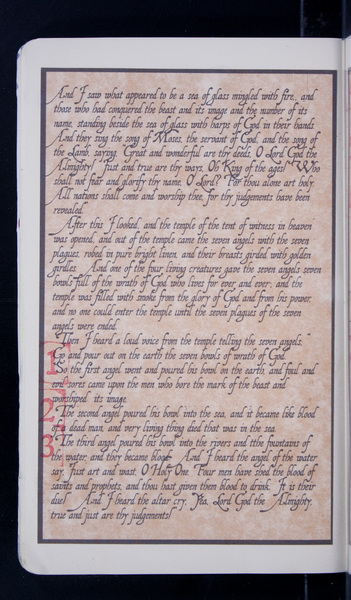 And I saw what appeared to be a sea of glass mingled with fire, and
those who had conquered the beast and its image and the number of its
name, standing beside the sea of glass with harps of God in their hands.
And they sing the song of Moses, the servant of God, and the song of
the Lamb, saying, "Great and wonderful are thy deeds, O Lord God the
Almighty! Just and true are thy ways, Oh King of the ages! Who
shall not fear and glorify thy name, O Lord? For thou alone art holy.
All nations shall come and worship thee, for thy judgements have been
revealed."
After this I looked, and the temple of the tent of witness in heaven
was opened, and out of the temple came the seven angels with the seven
plagues, robed in pure bright linen, and their breasts girded with golden
girdles. And one of the four living creatures gave the seven angels seven
bowls full of the wrath of God who lives for ever and ever; and the
temple was filled with smoke from the glory of God and from his power,
and no one could enter the temple until the seven plagues of the seven
angels were ended.
Then I heard a loud voice from the temple telling the seven angels, "
Go and pour out on the earth the seven bowls of wrath of God."
1. So the first angel went and poured his bowl on the earth, and foul and
evil sores came upon the men who bore the mark of the beast and
worshiped its image.
2. The second angel poured his bowl into the sea, and it became like blood
of a dead man, and very living thing died that was in the sea.
3. The third angel poured his bowl into the rivers and tthe fountains of
the water, and they became blood. And I heard the angel of the water
say, "Just art and wast, O Holy One. Pour men have shed the blood of
saints and prophets, and thou hast given them blood to drink. It is their
due!" And I heard the altar cry, "Yea, Lord God the Almighty,
true and just are thy judgements!"